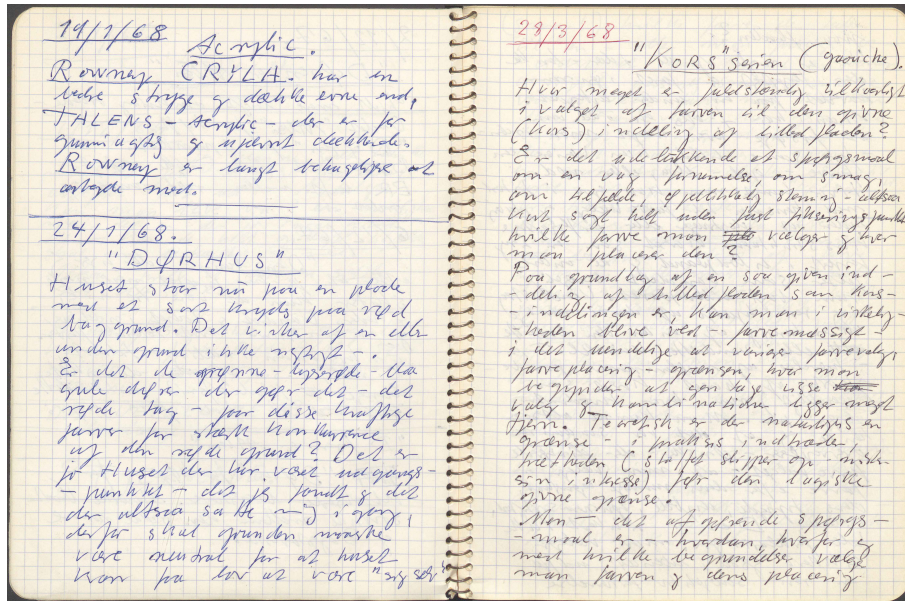 19/1/68
Acrylic.
Rowney CRYLA. har en
bedre stryge og dække evne end,
TALENS - Acrylic - der er for
gummiagtig og ujævnt dækkende.
Rowney er langt behageligere at
arbejde med.
24/1/68.
"DØRHUS"
Huset staar nu paa en plade
med et sort kryds paa rød
baggrund. Det virker af en eller
anden grund ikke rigtigt -.
Er det de grønne - lyserøde - Blaa
gule døre der gør det - det
røde tag - faar disse kraftige
farver for stærk konkurrence
af den røde grund? Det er
jo Huset der har været udgangs-
- punktet - det jeg fandt og det
der altsaa satte mig igang,
derfor skal grunden maaske
være neutral for at huset
kan faa lov at være "sig selv"
28/3/68
"KORS" serien (gouache).
Hvor meget er fuldstændig vilkaarligt
i valget af farven til den givne
(kors) indeling af billedfladen?
Er det udelukkende et spørgsmaal
om en vag fornemmelse, om smag,
om tilfælde, øjeblikkelig stemning - altsaa
kort sagt helt uden fast fikseringspunkt
hvilke farve man vælger og hvor
man placerer den?
Paa grundlag af en saa given ind-
- deling af billedfladen som Kors-
- inddelingen er, kan man i virkelig-
- heden blive ved - farvemæssigt -
i det uendelige at variere farvevalg,
farveplacering - grænsen, hvor man
begynder at gentage visse
valg og kombinationer ligger meget
fjern. Teoretisk er der naturligvis en
grænse - i praksis indtræder,
trætheden (stoffet slipper op - mister
sin interesse) før den logiske
givne grænse.
Men - det afgørende spørgs-
- maal er - hvordan, hvorfor og
med hvilke begrundelser vælger
man farven og dens placering